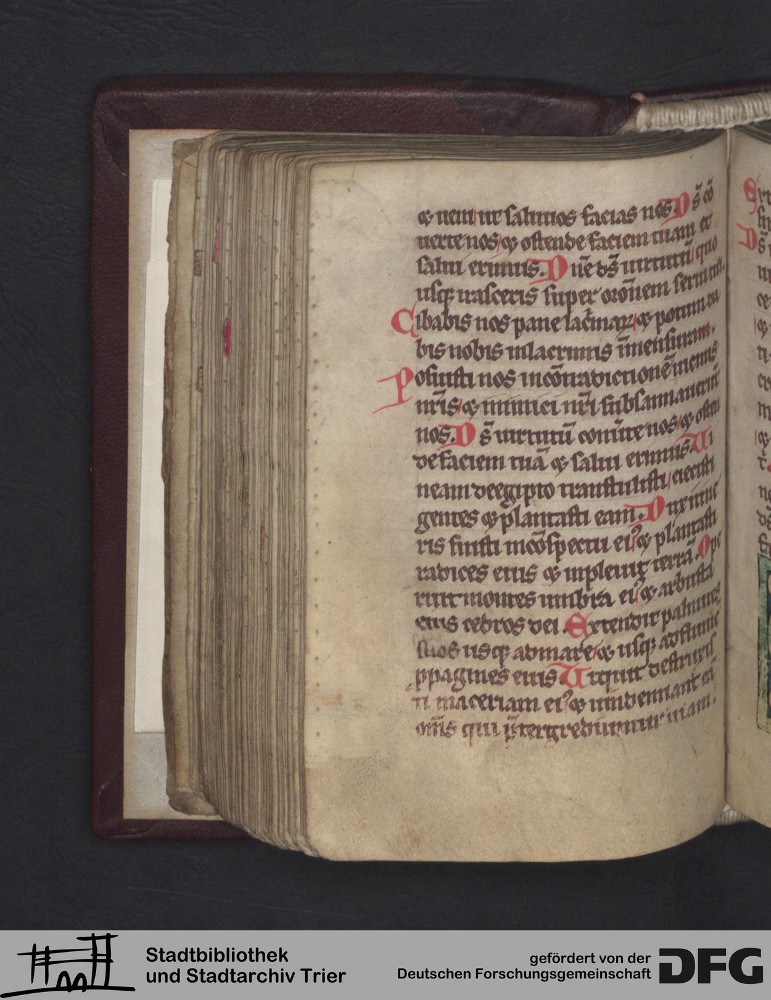 & ueni ut saluuos facias nos. Ds̄ cō
uerte nos & ostende faciem tuam et
salui erimus. Dn̄e ds̄ uirtutū quo
usq; irasceris super orōnem serui tui
Cibabis nos pane lac̄mar̄ & potum da
bis nobis in lacrimis ī mensuram.
Posuisti nos in cōtradictionē uicinis
nr̄is & inimici nr̄i subsannauerūt
nos. Ds̄ uirtutū conūte nos & osten
de faciem tuā & salui erimus Ui
neam de egipto transtulisti eiecisti
gentes & plantasti eam. Dux itine
ris fuisti in cōspectu ei⁹ & plantasti
radices eius & inpleuit terrā. Ope
ruit montes umbra ei⁹ & arbusta
eius cedros dei. Extendit palmites
suos usq; ad mare & usq; ad flumē
ppagines eius Ut quit destruxis
ti maceriam ei⁹ & uindemiant eā
om̄s qui p̄tergrediuntur uiam.
Stadtbibliothek
und Stadtarchiv Trier
gefördert von der
Deutschen Forschungsgemeinschaft
DFG